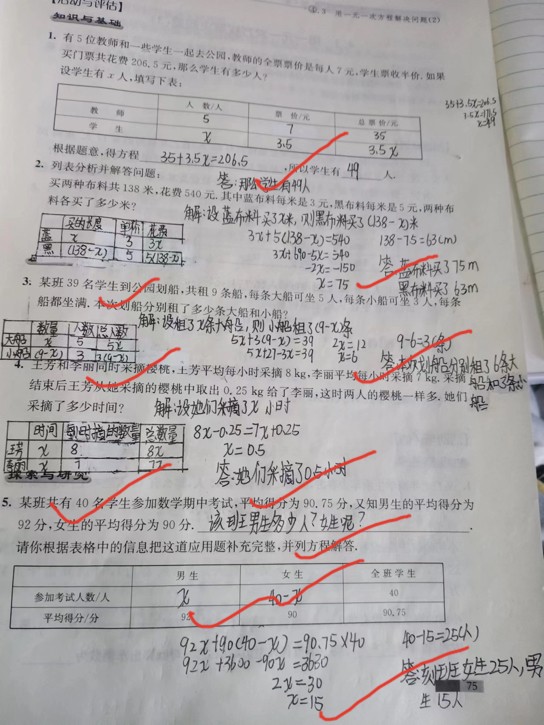 【活动与评估】
④.3 用一元一次方程解决问题(2)
知识与基础
1. 有5位教师和一些学生一起去公园,教师的全票票价是每人7元,学生票收半价.如果
买门票共花费206.5元,那么学生有多少人?
设学生有x人,填写下表:
35+3.5x=206.5
x=49
人数/人 票价/元 总票价/元
教师 5 7 35
学生 x 3.5 3.5x
根据题意,得方程 35+3.5x=206.5 ,所以学生有 49 人.
答:那么学生有49人
2. 列表分析并解答问题:
买两种布料共138米,花费540元.其中蓝布料每米3元,黑布料每米5元,两种布
料各买了多少米?
解:设蓝布料买了x米,则黑布料买了(138-x)米
买的长度 单价 花费
蓝 x 3 3x
黑 (138-x) 5 5(138-x)
3x+5(138-x)=540
3x+690-5x=540
-2x=-150
x=75
138-75=63(m)
答:蓝布料买了75m
黑布料买了63m
3. 某班39名学生到公园划船,共租9条船,每条大船可坐5人,每条小船可坐3人,每条
船都坐满.本次划船分别租了多少条大船和小船?
数量 人数 总人数
大船 x 5 5x
小船 (9-x) 3 3(9-x)
解:设租了x条大船,则小船租了(9-x)条
5x+3(9-x)=39
5x+27-3x=39
2x=12
x=6
9-6=3(条)
答:本次划船分别租了6条大
船和3条小
船
4. 王芳和李丽同时采摘樱桃,王芳平均每小时采摘8 kg,李丽平均每小时采摘7 kg.采摘
结束后王芳从她采摘的樱桃中取出0.25 kg给了李丽,这时两人的樱桃一样多.她们
采摘了多少时间?
解:设她们采摘了x小时
时间 每小时摘的数量 总数量
王芳 x 8 8x
李丽 x 7 7x
8x-0.25=7x+0.25
x=0.5
答:她们采摘了0.5小时
探索与研究
5. 某班共有40名学生参加数学期中考试,平均得分为90.75分,又知男生的平均得分为
92分,女生的平均得分为90分. 该班男生多少人?女生呢?
请你根据表格中的信息把这道应用题补充完整,并列方程解答.
男生 女生 全班学生
参加考试人数/人 x 40-x 40
平均得分/分 92 90 90.75
92x+90(40-x)=90.75×40
92x+3600-90x=3630
2x=30
x=15
40-15=25(人)
答:该班女生25人,男
生15人
75